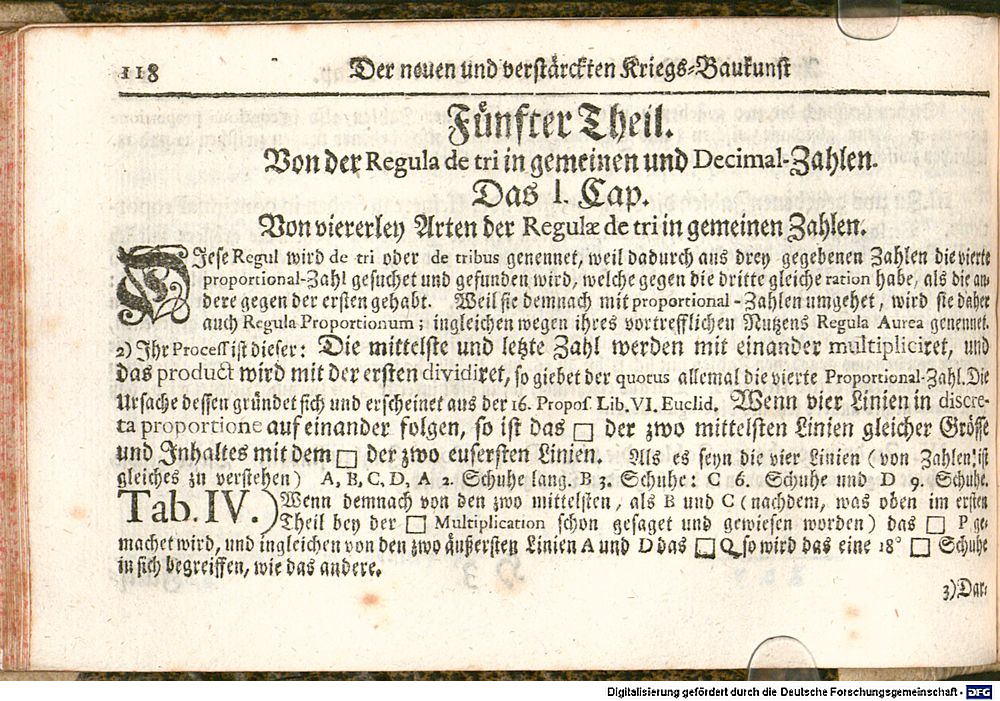 118 Der neuen und verstärckten Kriegs-Baukunst
Fünfter Theil.
Von der Regula de tri in gemeinen und Decimal-Zahlen.
Das I. Cap.
Von viererley Arten der Regulæ de tri in gemeinen Zahlen.
DIese Regul wird de tri oder de tribus genennet, weil dadurch aus drey gegebenen Zahlen die vierte
proportional-Zahl gesuchet und gefunden wird, welche gegen die dritte gleiche ration habe, als die an-
dere gegen der ersten gehabt. Weil sie demnach mit proportional-Zahlen umgehet, wird sie daher
auch Regula Proportionum; ingleichen wegen ihres vortrefflichen Nutzens Regula Aurea genennet.
2) Ihr Process ist dieser: Die mittelste und letzte Zahl werden mit einander multipliciret, und
das product wird mit der ersten dividiret, so giebet der quotus allemal die vierte Proportional-Zahl. Die
Ursache dessen gründet sich und erscheinet aus der 16. Propos. Lib. VI. Euclid. Wenn vier Linien in discre-
ta proportione auf einander folgen, so ist das □ der zwo mittelsten Linien gleicher Grösse
und Inhaltes mit dem □ der zwo eusersten Linien. Als es seyn die vier Linien (von Zahlen ist
gleiches zu verstehen) A, B, C, D, A 2. Schuhe lang. B 3. Schuhe: C 6. Schuhe und D 9. Schuhe.
Tab. IV.) Wenn demnach von den zwo mittelsten, als B und C (nachdem, was oben im ersten
Theil bey der □ Multiplication schon gesaget und gewiesen worden) das □ P ge-
machet wird, und ingleichen von den zwo äußersten Linien A und D das □ Q so wird das eine 18° □ Schuhe
in sich begreiffen, wie das andere.
3) Dar-
Digitalisierung gefördert durch die Deutsche Forschungsgemeinschaft - DFG